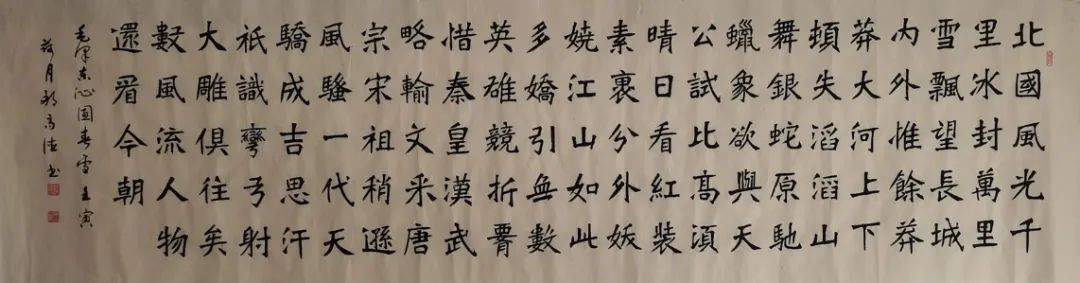 北國風光千
里冰封萬里
雪飄望長城
内外惟餘莽
莽大河上下
頓失滔滔山
舞銀蛇原馳
蠟象欲與天
公試比髙須
晴日看紅裝
素裹分外妖
嬈江山如此
多嬌引無數
英雄競折
惜秦皇漢武
略輸文采唐
宗宋祖稍遜
風騷一代天
驕成吉思汗
祇識彎弓射
大雕俱往矣
數風流人物
還看今朝
毛澤东沁園春雪壬寅